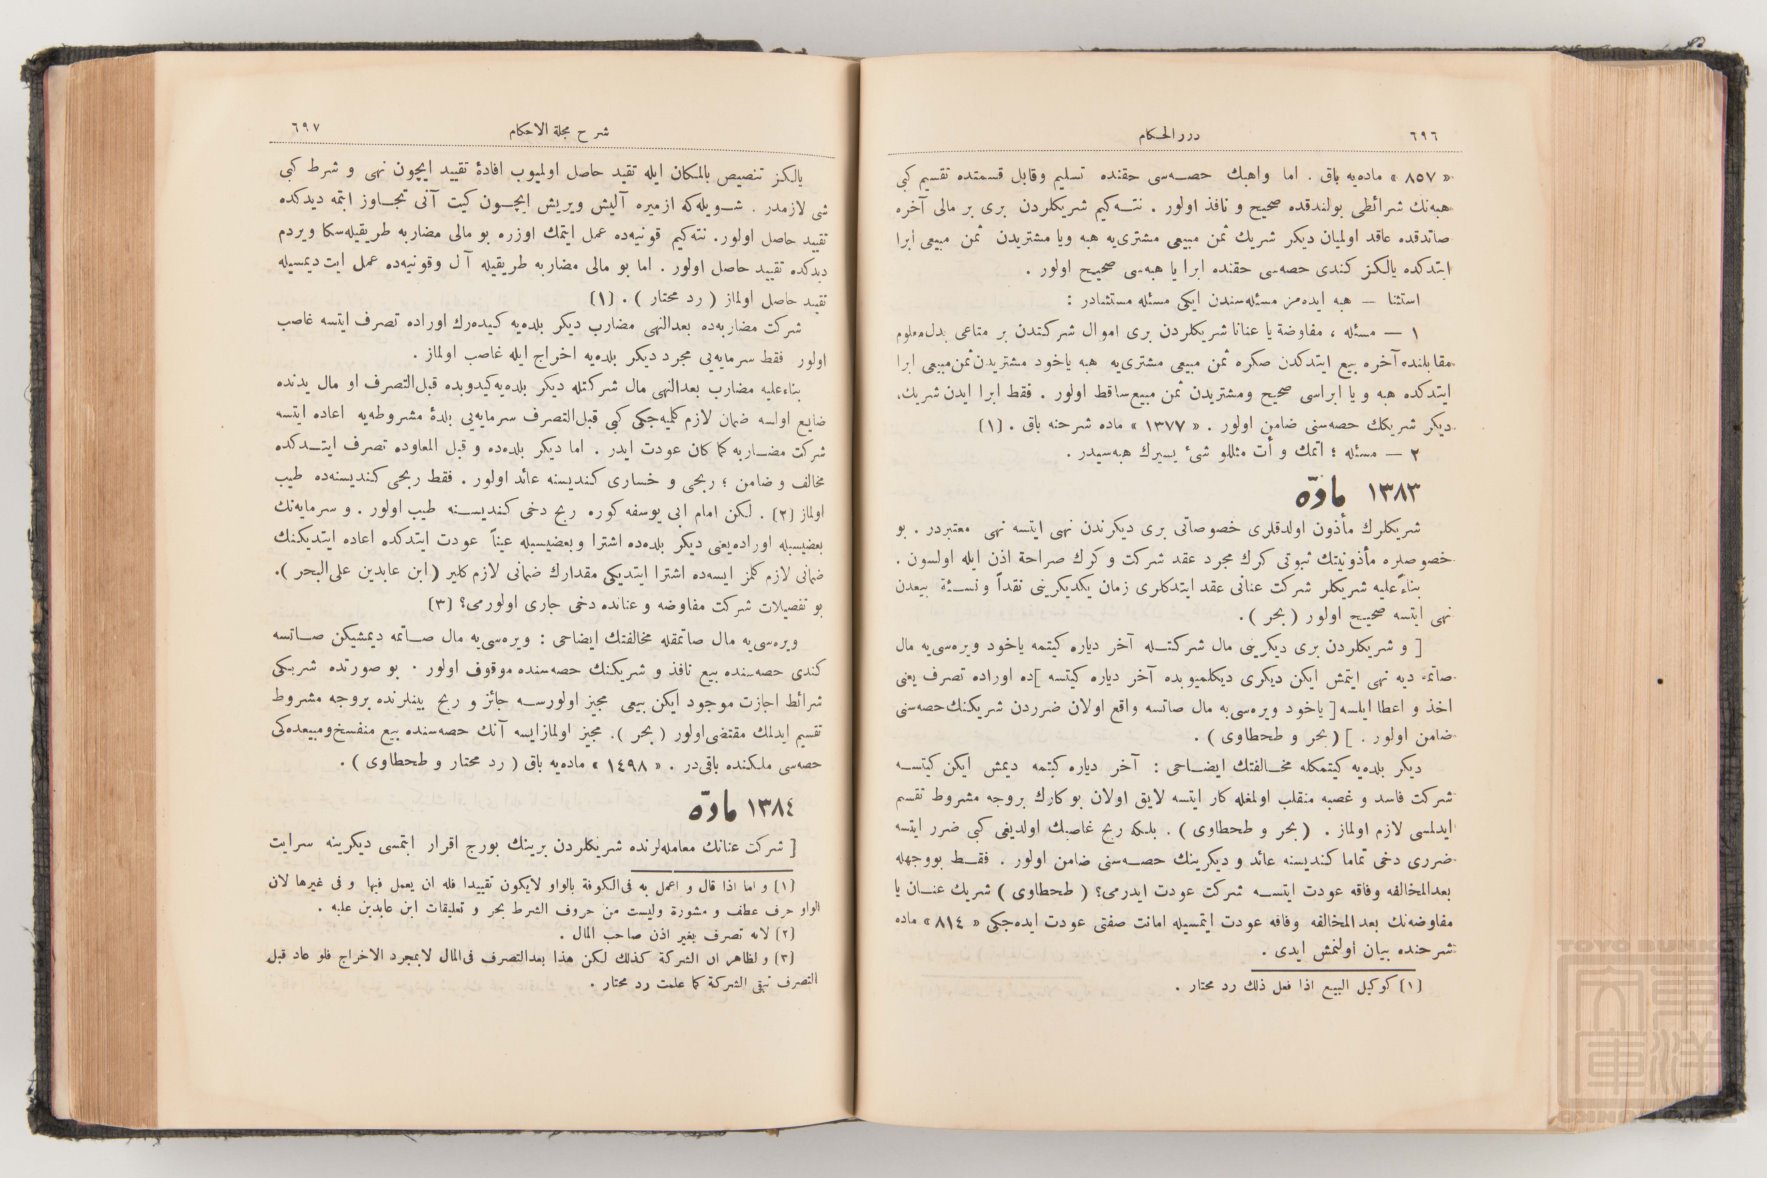 ٦٩٦
دررالحكام
« ٨٥٧ » مادەيه باق . اما واهبك حصـەسی حقنده تسليم وقابل قسمتده تقسيم كبی
هبه‌نك شرائطی بولندقده صحيح و نافذ اولور . نتـەكيم شريكلردن بری بر مالی آخره
صاتدقده عاقد اولميان ديكر شريك ثمن مبيعی مشتری‌يه هبه ويا مشتريدن ثمن مبيعی ابرا
ايتدكده يالكز كندی حصه‌سی حقنده ابرا يا هبه‌سی صحيح اولور .
استثنا – هبه ايده‌مز مسئله‌سندن ايكی مسئله مستثنادر :
١ – مسئله ، مفاوضة يا عنانا شريكلردن بری اموال شركتدن بر متاعی بدل معلوم
مقابلنده آخره بيع ايتدكدن صكره ثمن مبيعی مشتری‌يه هبه ياخود مشتريدن ثمن‌مبيعی ابرا
ايتدكده هبه و يا ابراسی صحيح ومشتريدن ثمن مبيع ساقط اولور . فقط ابرا ايدن شريك،
ديكر شريكك حصه‌سنی ضامن اولور . « ١٣٧٧ » ماده شرحنه باق . (١)
٢ – مسئله ؛ اتمك و أت مثللو شیٔ يسيرك هبه‌سيدر .
١٣٨٣ مادّه
شريكلرك مأذون اولدقلری خصوصاتی بری ديكرندن نهی ايتسه نهی معتبردر . بو
خصوصلره مأذونيتك ثبوتی كرك مجرد عقد شركت و كرك صراحة اذن ايله اولسون .
بناءً‌عليه شريكلر شركت عنانی عقد ايتدكلری زمان يكديكرينی نقداً و نسـئة بيعدن
نهی ايتسه صحيح اولور ( بحر ) .
[ و شريكلردن بری ديكرينی مال شركتـله آخر دياره كيتمه ياخود ويره‌سی‌يه مال
صاتمه ديه نهی ايتمش ايكن ديكری ديكلميوبده آخر دياره كيتسه ]ده اوراده تصرف يعنی
اخذ و اعطا ايلسه[ ياخود ويره‌سی‌يه مال صاتسه واقع اولان ضرردن شريكنك‌حصه‌سنی
ضامن اولور . ] ( بحر و طحطاوی ) .
ديكر بلده‌يه كيتمكله مخـالفتك ايضـاحی : آخر دياره كيتمه ديمش ايكن كيتسـه
شركت فاسد و غصبه منقلب اولمغله كار ايتسه لايق اولان بوكارك بروجه مشروط تقسيم
ايدلمسی لازم اولماز . ( بحر و طحطاوی ) . بلكه ربح غاصبك اولديغی كبی ضرر ايتسه
ضرری دخی تماما كنديسنه عائد و ديكرينك حصـه‌سنی ضامن اولور . فقـط بووجهله
بعدالمخالفه وفاقه عودت ايتسـه شركت عودت ايدرمی؟ ( طحطاوی ) شريك عنـان يا
مفاوضه‌نك بعدالمخالفه وفاقه عودت ايتمسيله امانت صفتی عودت ايده‌جكی « ٨١٤ » ماده
شرحنده بيان اولنمش ايدی .
(١) كوكيل البيع اذا فعل ذلك رد محتار .
شرح مجلة الاحكام
٦٩٧
يالكز تنصيص بالمكان ايله تقيد حاصل اولميوب افادۀ تقييد ايچون نهی و شرط كبی
شی لازمدر . شـويله‌كه ازميره آليش ويريش ايچـون كيت آنی تجـاوز ايتمه ديدكده
تقييد حاصل اولور. نته‌كيم قونيه‌ده عمل ايتمك اوزره بو مالی مضاربه طريقيله‌سكا ويردم
ديدكده تقييد حاصل اولور . اما بو مالی مضاربه طريقيله آل وقونيه‌ده عمل ايت ديمسيله
تقييد حاصل اولماز ( رد محتار ) . (١)
شركت مضاربه‌ده بعدالنهی مضارب ديكر بلده‌يه كيده‌رك اوراده تصرف ايتسه غاصب
اولور فقط سرمايه‌يی مجرد ديكر بلده‌يه اخراج ايله غاصب اولماز .
بناءعليه مضارب بعدالنهی مال شركتله ديكر بلده‌يه‌كيدوبده قبل‌التصرف او مال يدنده
ضايع اولسه ضمان لازم كلميه‌جكی كبی قبل‌التصرف سرمايه‌يی بلدۀ مشروطه‌يه اعاده ايتسه
شركت مضـاربه كما كان عودت ايدر . اما ديكر بلده‌ده و قبل المعاوده تصرف ايتـدكده
مخالف و ضامن ؛ ربحی و خساری كنديسنه عائد اولور . فقط ربحی كنديسنه‌ده طيب
اولماز (٢) . لكن امام ابی يوسفه كوره ربح دخی كنديسـنه طيب اولور . و سرمايه‌نك
بعضيسيله اوراده‌يعنی ديكر بلده‌ده اشترا و بعضيسيله عيناً عودت ايتدكده اعاده ايتديكنك
ضمانی لازم كلمز ايسه‌ده اشترا ايتديكی مقدارك ضمانی لازم كلير ( ابن عابدين علی‌البحر ).
بو تفصيلات شركت مفاوضه و عنانده دخی جاری اولورمی؟ (٣)
ويره‌سی‌يه مال صاتمقله مخالفتك ايضاحی : ويره‌سی‌يه مال صـاتمه ديمشيكن صـاتسه
كندی حصه‌سنده بيع نافذ و شريكنك حصه‌سنده موقوف اولور . بو صورتده شريكی
شرائط اجازت موجود ايكن بيعی مجيز اولورسـه جائز و ربح بينلرنده بروجه مشروط
تقسيم ايدلمك مقتضی‌اولور ( بحر ) . مجيز اولمازايسه آنك حصه‌سنده بيع منفسخ‌ومبيعده‌كی
حصه‌سی ملكنده باقی‌در . « ١٤٩٨ » ماده‌يه باق ( رد محتار و طحطاوی ) .
١٣٨٤ مادّه
[ شركت عنانك معامله‌لرنده شريكلردن برينك بورج اقرار ايتمسی ديكرينه سرايت
(١) و اما اذا قال و اعمل به فی‌الكوفة بالواو لايكون تقييدا فله ان يعمل فيها و فی غيرها لان
الواو حرف عطف و مشورة وليست من حروف الشرط بحر و تعليقات ابن عابدين عليه .
(٢) لانه تصرف بغير اذن صاحب المال .
(٣) و لظاهر ان الشركة كذلك لكن هذا بعدالتصرف فی‌المال لابمجرد الاخراج فلو عاد قبل
التصرف تبقی الشركة كما علمت رد محتار .
TOYO BUNKO
東洋文庫